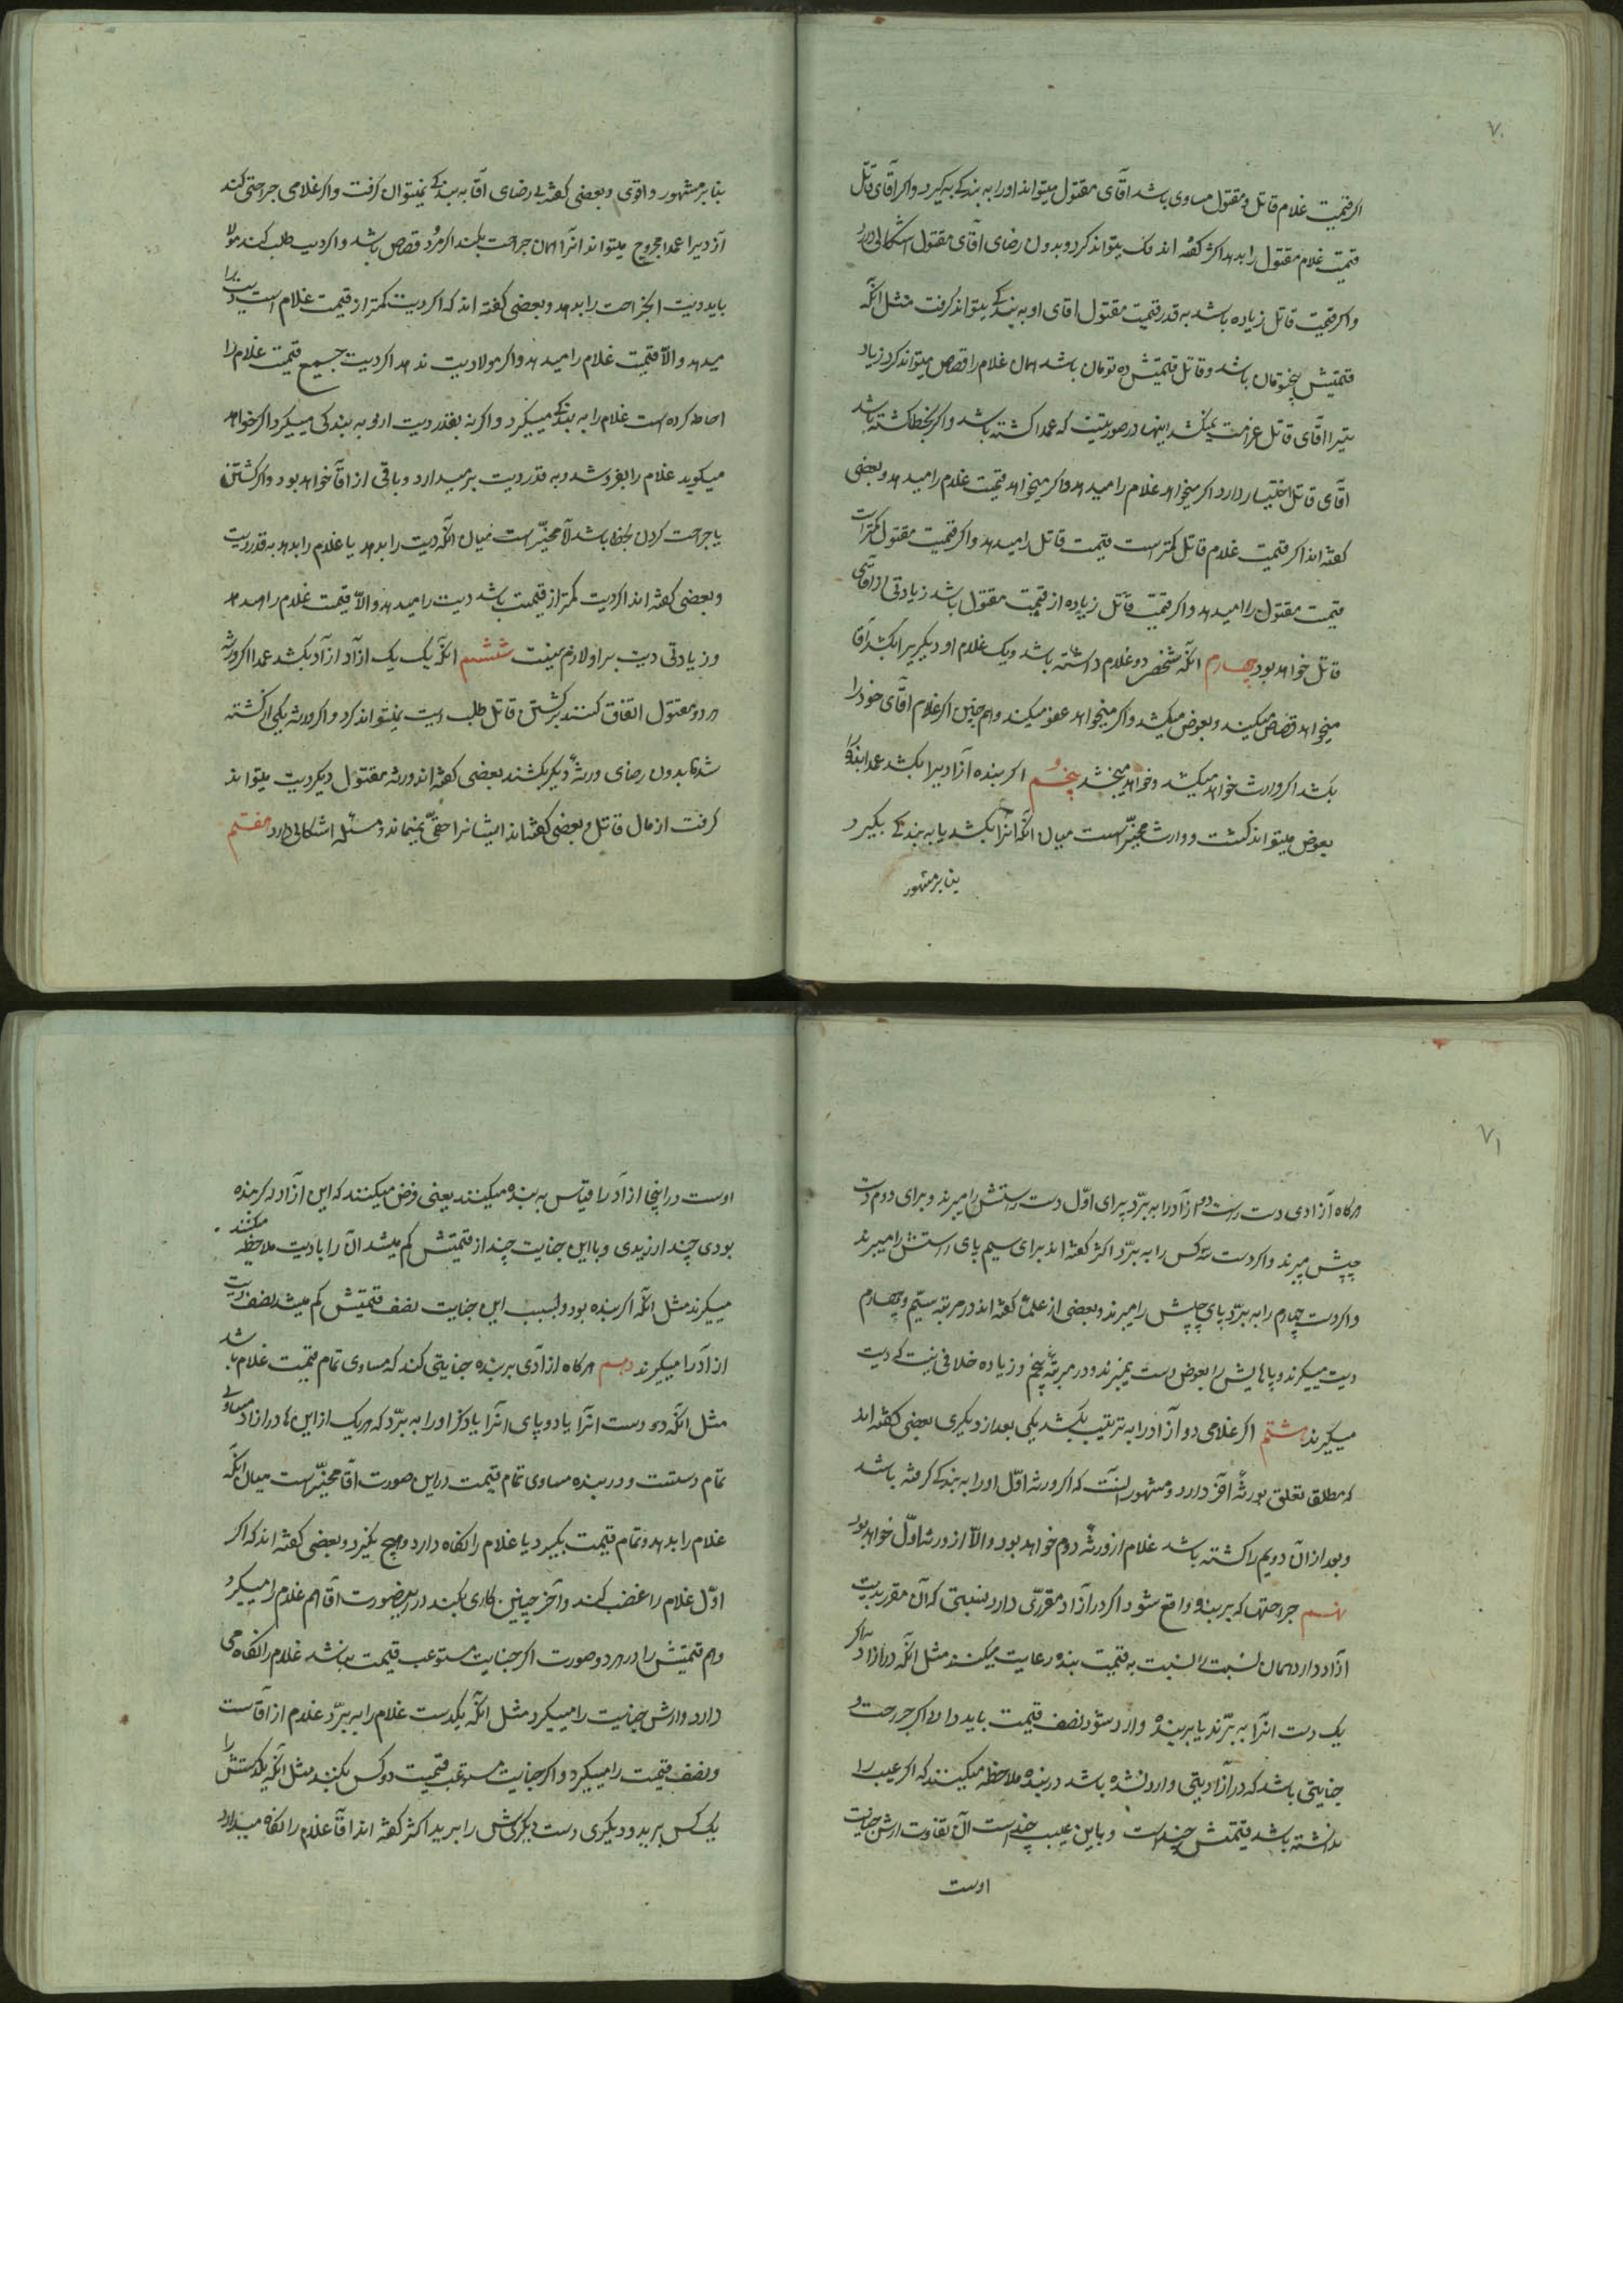 ۷۰
اگر قیمت غلام قاتل و مقتول مساوی باشد آقای مقتول میتواند اورا به بندگی بگیرد و اگر آقای قاتل
قیمت غلام مقتول را بدهد اکثر گفته اند فک میتواند کرد و بدون رضای آقای مقتول اشکالی دارد
و اگر قیمت قاتل زیاده باشد به قدر قیمت مقتول اقای او به بندگی میتواند گرفت مثل آنکه
قیمتش پنجتومان باشد و قاتل قیمتش ده تومان باشد همان غلام را قصاص میتواند کرد زیاد
تیرا اقای قاتل غرامت نمیکشد اینها در صورتیست که عمدا کشته باشد و اگر بخطا کشته باشد
اقای قاتل اختیار دارد اگر میخواهد غلام را میدهد و اگر میخواهد قیمت غلام را میدهد و بعضی
گفته اند اگر قیمت غلام قاتل کمتر است قیمت قاتل را میدهد و اگر قیمت مقتول کمتر است
قیمت مقتول را میدهد و اگر قیمت قاتل زیاده از قیمت مقتول باشد زیادتی از آقای
قاتل خواهد بود چهارم آنکه شخصی دو غلام داشته باشد و یک غلام او دیگریرا بکشد آقا
میخواهد قصاص میکند و بعوض میکشد و اگر میخواهد عفو میکند و هم چنین اگر غلام آقای خود را
بکشد اگر وارث خواهد میکشد و خواهد میبخشد پنجم اگر بنده آزادیرا بکشد عمدا بنده را
بعوض میتواند کشت و وارث مخیّر است میان آنکه آنرا بکشد یا به بندگی بگیرد
بنا بر مشهور
بنا بر مشهور و اقوی و بعضی گفته بی رضای آقا به بندگی نمیتوان گرفت و اگر غلامی جراحتی کند
آزدیرا عمدا مجروح میتواند آنرا همان جراحت بکند اگر مرد قصاص باشد و اگر دیت طلب کند مولا
باید دیت الجراحت را بدهد و بعضی گفته اند که اگر دیت کمتر از قیمت غلام است دیت را
میدهد والّا قیمت غلام را میدهد و اگر مولا دیت ندهد اگر دیت جمیع قیمت غلام را
احاطه کرده است غلام را به بندگی میگیرد و اگر نه بقدر دیت از و به بندگی میگیرد اگر خواهد
میگوید غلام را بفروشد و به قدر دیت برمیدارد و باقی از آقا خواهد بود و اگر کشتن
یا جراحت کردن بخطا باشد لا مخیّر است میان آنکه دیت را بدهد یا غلام را بدهد به قدر دیت
و بعضی گفته اند اگر دیت کمتر از قیمت باشد دیت را میدهد والّا قیمت غلام را میدهد
و زیادتی دیت بر او لازم نیست ششم آنکه یک یک ازآد ازآد بکشد عمدا اگر ورثه
هر دو مقتول اتفاق کنند بر کشتن قاتل طلب دیت نمیتواند کرد و اگر ورثه یکی از کشته
شدها بدون رضای ورثهٔ دیگر بکشند بعضی گفته اند ورثه مقتول دیگر دیت میتواند
گرفت از مال قاتل و بعضی گفته اند ایشانرا حقّی نمیماند و مسئله اشکالی دارد هفتم
۷۱
هرگاه آزادی دست راست دو ازآدرا به برّد برای اوّل دست راستش را میبرند و برای دوم دست
چپش میبرند و اگر دست سه کس را به برّد اکثر گفته اند برای سیم پای راستش را میبرند
و اگر دست چهارم را به برّد پای چپش را میبرند و بعضی از علما گفته اند در مرتبه سیّم و چهارم
دیت میگیرند و پاهایش را بعوض دست نمیبرند و در مرتبهٔ پنجم و زیاده خلافی نیست که دیت
میگیرند هشتم اگر غلامی دو آزادرا به ترتیب بکشد یکی بعد از دیگری بعضی گفته اند
که مطلق تعلق بورثهٔ آخر دارد و مشهور آنست که اگر ورثه اوّل اورا به بندگی گرفته باشد
و بعد از آن دویم را کشته باشد غلام از ورثهٔ دوم خواهد بود والّا از ورثه اوّل خواهد بود
نهم جراحتها که بر بنده واقع شود اگر در آزاد مقرّری دارد نسبتی که آن مقرر بدیت
آزاد دارد همان نسبت را نسبت به قیمت بنده رعایت میکنند مثل آنکه در ازاد اگر
یک دست انرا به برّند یا بر بنده وارد شود نصف قیمت باید داد و اگر جراحت و
جنایتی باشد که در آزاد دیتی وارد نشده باشد در بنده ملاحظه میکنند که اگر عیب را
نداشته باشد قیمتش چند است و با این عیب چند است آن تفاوت ارش جنایت
اوست
اوست در اینجا ازآد را قیاس به بنده میکنند یعنی فرض میکنند که این ازآد اگر بنده
بودی چند ارزیدی و با این جنایت چند از قیمتش کم میشد آن را با دیت ملاحظه میکنند
میگیرند مثل آنکه اگر بنده بود و بسبب این جنایت نصف قیمتش کم میشد نصف دیت
ازآد را میگیرند دهم هرگاه ازآدی بر بنده جنایتی کند که مساوی تمام قیمت غلام باشد
مثل آنکه دو دست انرا یا دو پای انرا یا ذکر اورا به برّد که هریک از این ها در ازاد مساوی
تمام دیتست و در بنده مساوی تمام قیمت در این صورت آقا مخیّر است میان آنکه
غلام را بدهد و تمام قیمت بگیرد یا غلام را نگاه دارد و هیچ نگیرد و بعضی گفته اند که اگر
اوّل غلام را غضب کند و آخر چنین کاری بکند در اینصورت آقا هم غلام را میگیرد
و هم قیمتش را در هر دو صورت اگر جنایت مستوعب قیمت نباشد غلام را نگاه می
دارد و ارش جنایت را میگیرد مثل آنکه یکدست غلام را به برّد غلام از آقاست
و نصف قیمت را میگیرد و اگر جنایت مستوعب قیمت دو کس بکنند مثل آنکه یکدستش را
یک کس برید و دیگری دست دیگرش را برید اکثر گفته اند اقا غلام را نگاه میدارد